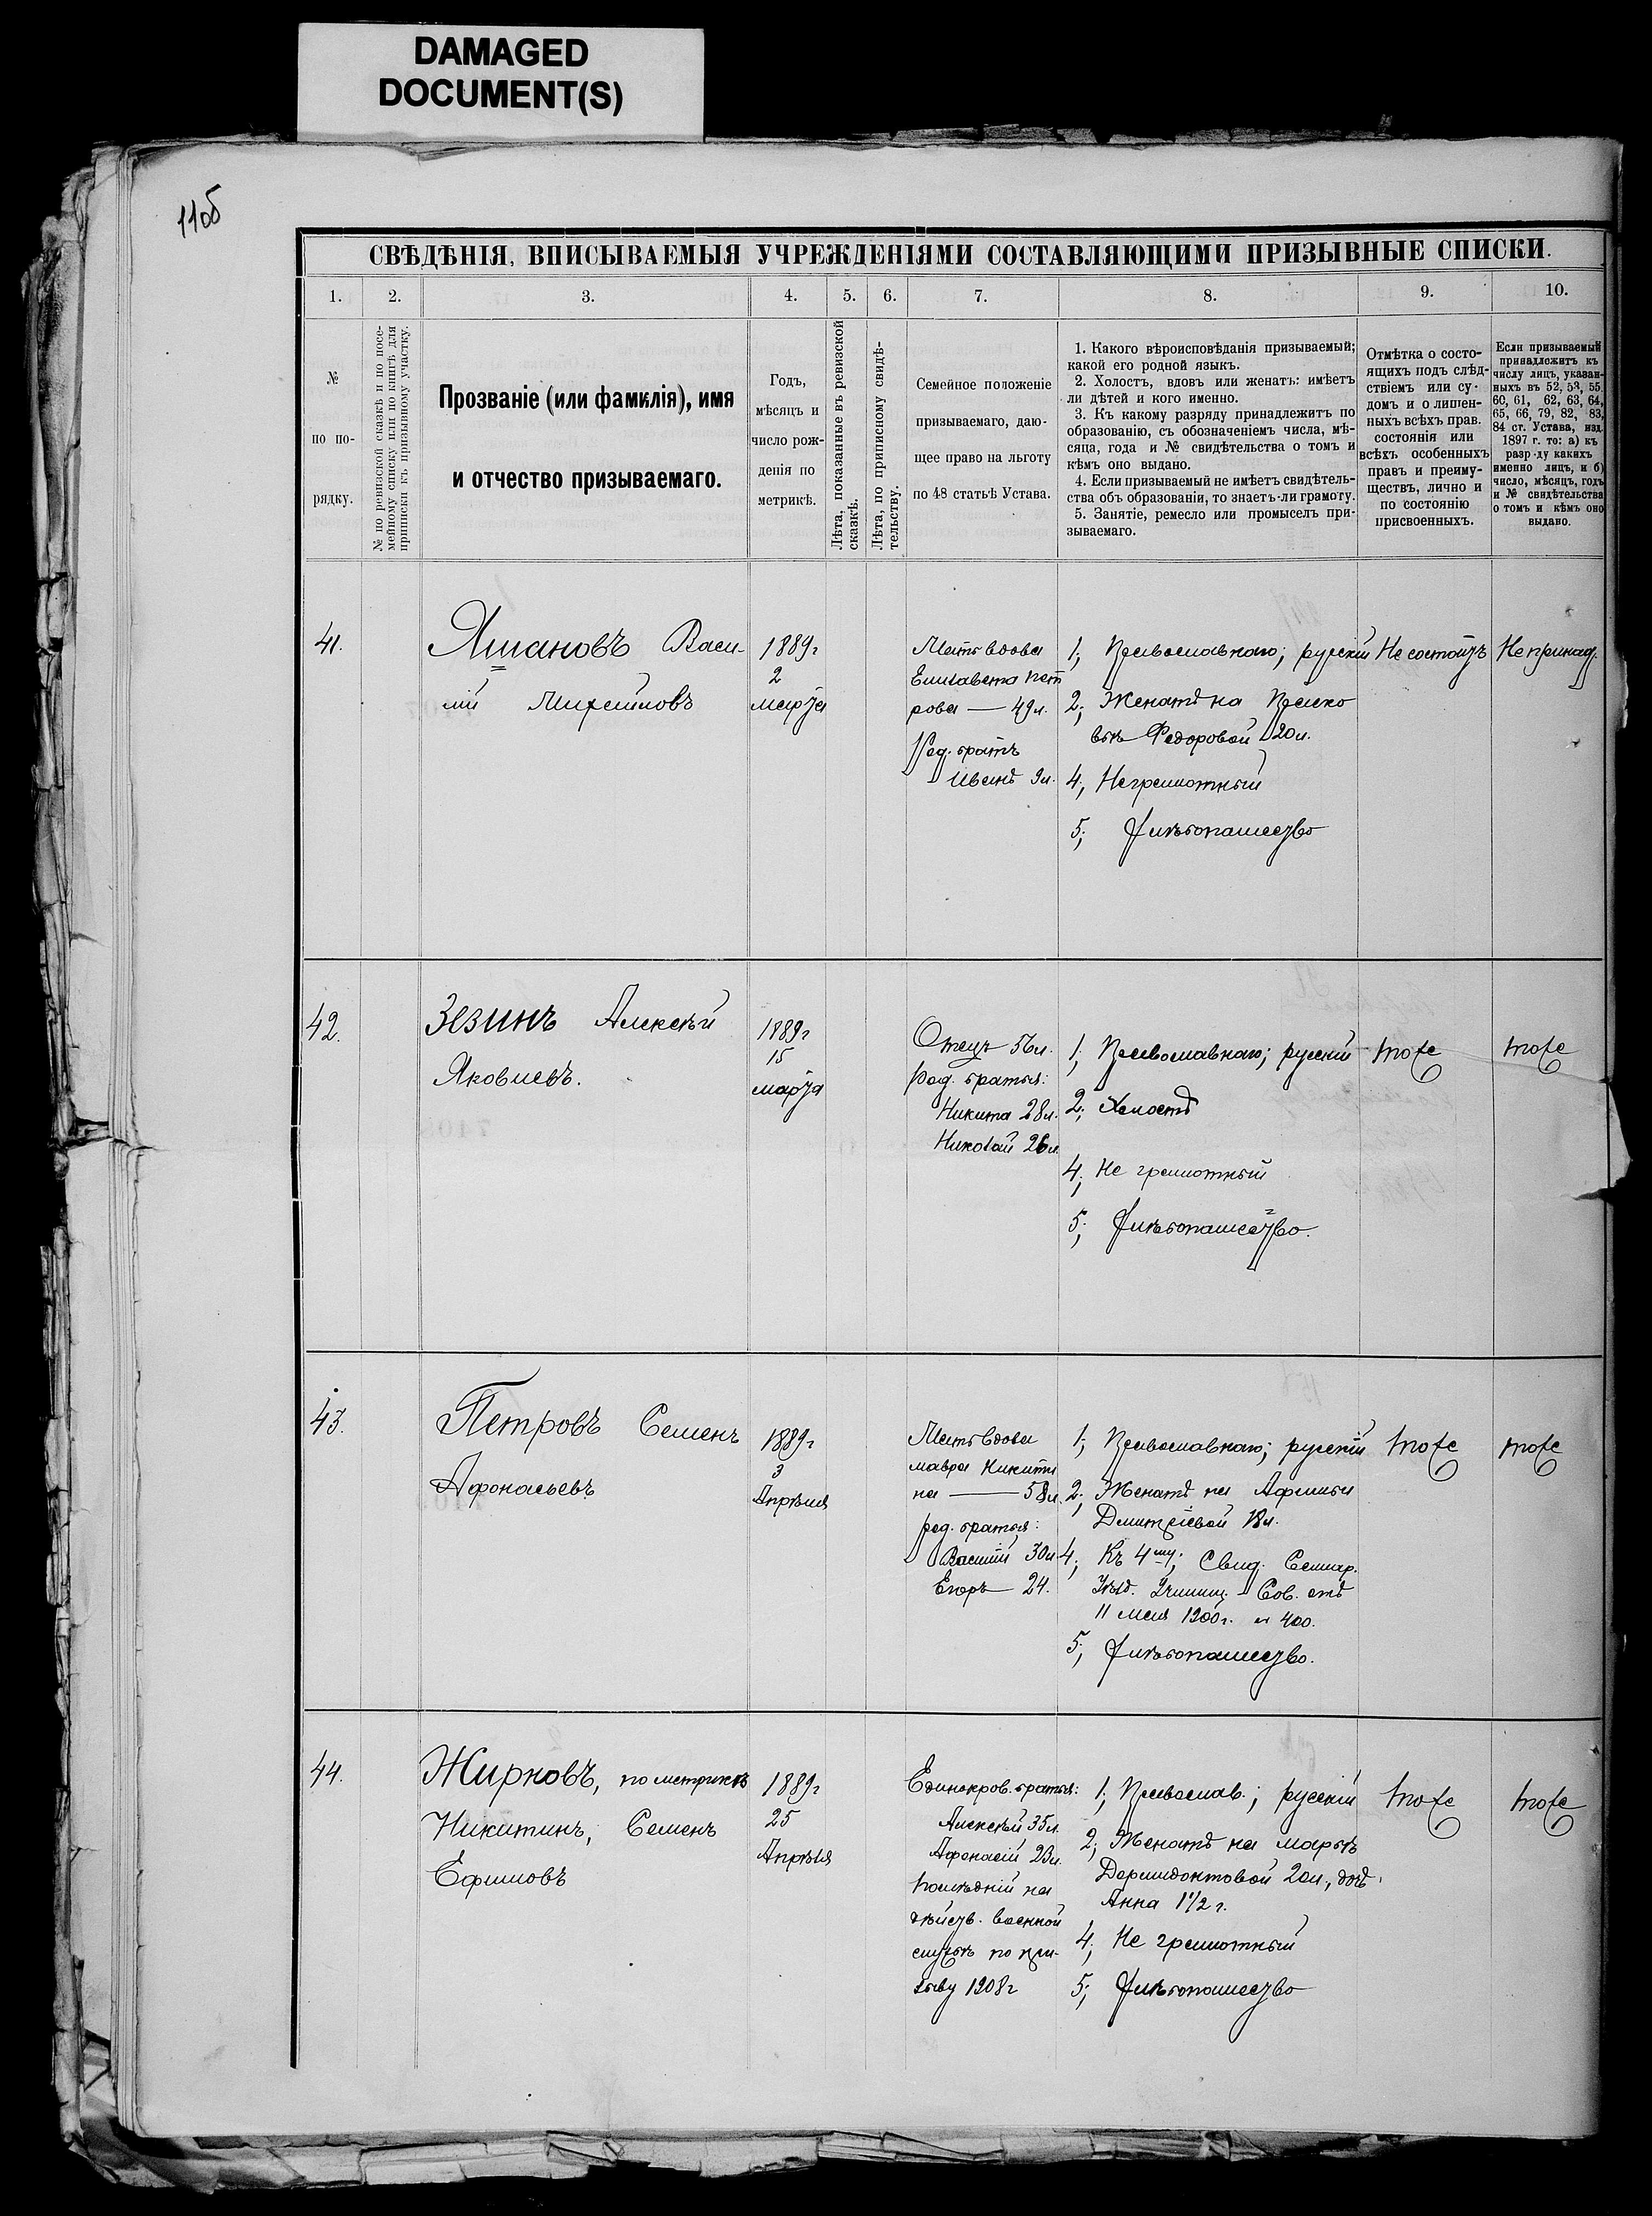 DAMAGED
DOCUMENT(S)
110б
СВѢДѢНІЯ, ВПИСЫВАЕМЫЯ УЧРЕЖДЕНІЯМИ СОСТАВЛЯЮЩИМИ ПРИЗЫВНЫЕ СПИСКИ.
1. 2. 3. 4. 5. 6. 7. 8. 9. 10.
№
по по-
рядку.
№ по ревизской сказкѣ и по посе-
мейному списку или по книгѣ для
приписки къ призывному участку.
Прозваніе (или фамилія), имя
и отчество призываемаго.
Годъ,
мѣсяцъ и
число рож-
денія по
метрикѣ.
Лѣта, показанные въ ревизской
сказкѣ.
Лѣта, по приписному свидѣ-
тельству.
Семейное положеніе
призываемаго, даю-
щее право на льготу
по 48 статьѣ Устава.
1. Какого вѣроисповѣданія призываемый;
какой его родной языкъ.
2. Холостъ, вдовъ или женатъ: имѣетъ
ли дѣтей и кого именно.
3. Къ какому разряду принадлежитъ по
образованію, съ обозначеніемъ числа, мѣ-
сяца, года и № свидѣтельства о томъ и
кѣмъ оно выдано.
4. Если призываемый не имѣетъ свидѣтель-
ства объ образованіи, то знаетъ-ли грамоту.
5. Занятіе, ремесло или промыселъ при-
зываемаго.
Отмѣтка о состо-
ящихъ подъ слѣд-
ствіемъ или су-
домъ и о лишен-
ныхъ всѣхъ прав.
состоянія или
всѣхъ особенныхъ
правъ и преиму-
ществъ, лично и
по состоянію
присвоенныхъ.
Если призываемый
принадлежитъ къ
числу лицъ, указан-
ныхъ въ 52, 53, 55,
60, 61, 62, 63, 64,
65, 66, 79, 82, 83,
84 ст. Устава, изд.
1897 г. то: а) къ
разр-ду какихъ
именно лицъ, и б)
число, мѣсяцъ, годъ
и № свидѣтельства
о томъ и кѣмъ оно
выдано.
41.
Ямановъ Васи-
лій Михайловъ
1889 г
2
марта
Мать вдова
Елизавета Пет
рова — 49 л.
Род. братъ
Иванъ 9 л.
1; Православнаго; русскій
2; Женатъ на Праско
вьѣ Федоровой 20 л.
4; Неграмотный
5; Хлѣбопашество
Не состоитъ
Не принад.
42.
Зезинъ Алексѣй
Яковлевъ.
1889 г
15
марта
Отецъ 56 л.
род. братья:
Никита 28 л.
Николай 26 л
1; Православнаго; русскій
2; Холостъ
4; Не грамотный
5; Хлѣбопашество.
тоже
тоже
43.
Петровъ Семенъ
Афонасьевъ
1889 г
3
Апрѣля
Мать вдова
мавра Никити
на — 58 л
род. братья:
Василій 30 л
Егоръ — 24.
1; Православнаго; русскій
2; Женатъ на Афимьи
Дмитріевой 18 л.
4; Къ 4му; Свид. Самар.
Уѣзд. Училищ. Сов. отъ
11 мая 1900 г. № 400.
5; Хлѣбопашество.
тоже
тоже
44.
Жирновъ, по метрикѣ
Никитинъ, Семенъ
Ефимовъ
1889 г
25
Апрѣля
Единокров. братья:
Алексѣй 35 л.
Афонасій 23 л.
послѣдній на
дѣйств. военной
службѣ по при-
зыву 1908 г
1; Православ.; русскій
2; Женатъ на марьѣ
Дормидонтовой 20 л., дочь
Анна 1 1/2 г.
4; Не грамотный
5; Хлѣбопашество
тоже
тоже